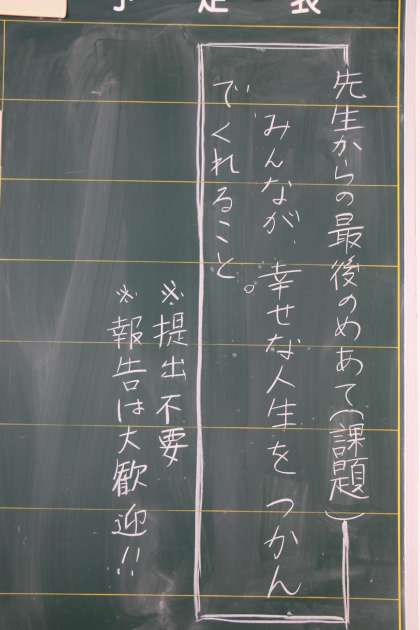 予定表
先生からの最後のめあて(課題)
みんなが、幸せな人生を つかん
でくれること。
※提出不要
※報告は大歓迎!!